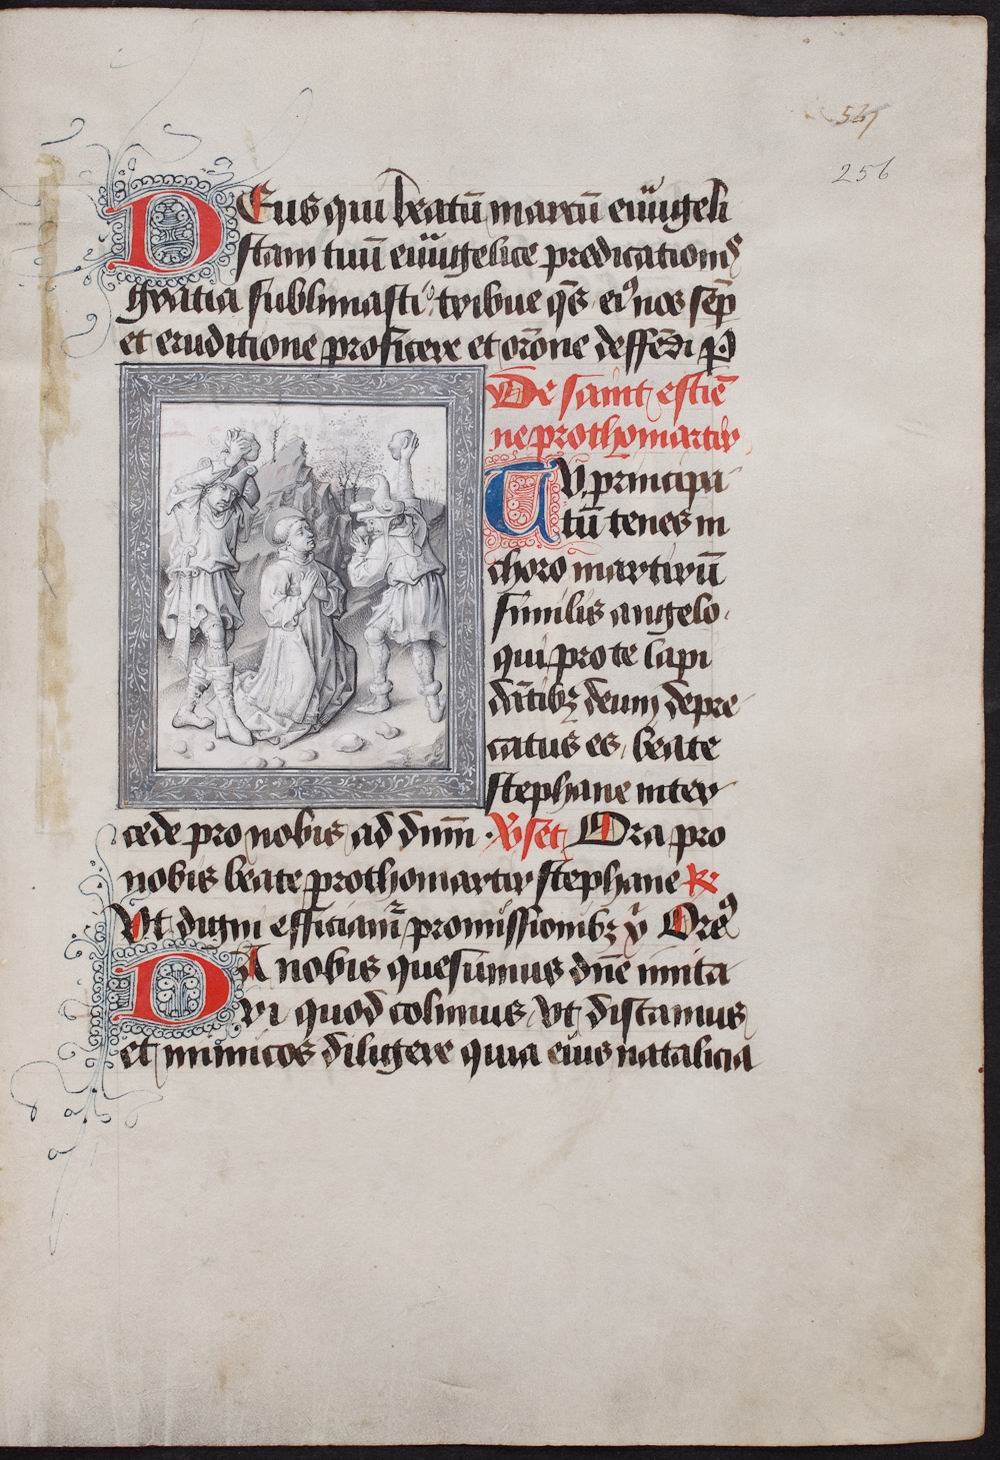 256
DEus qui beatū marcū euūgeli
stam tuū euūgelice predicationis
gratia sublimasti tribue q̄s eiꝰ nos sēp
et eruditione proficere et orōne deffēdi P
De saint estiē
ne prothomartir
TV principa
tū tenes in
choro martirū
similis angelo
qui pro te lapi
dātibꝫ deum depre
catus es beate
stephane inter
cede pro nobis ad dn̄m · v̄set Ora pro
nobis beate prothomartir stephane R
Vt digni efficiam̄ promissionibꝫ x Orē
DA nobis quesumus dn̄e imita
ri quod colimus vt discamus
et inimicos diligere quia eius natalicia